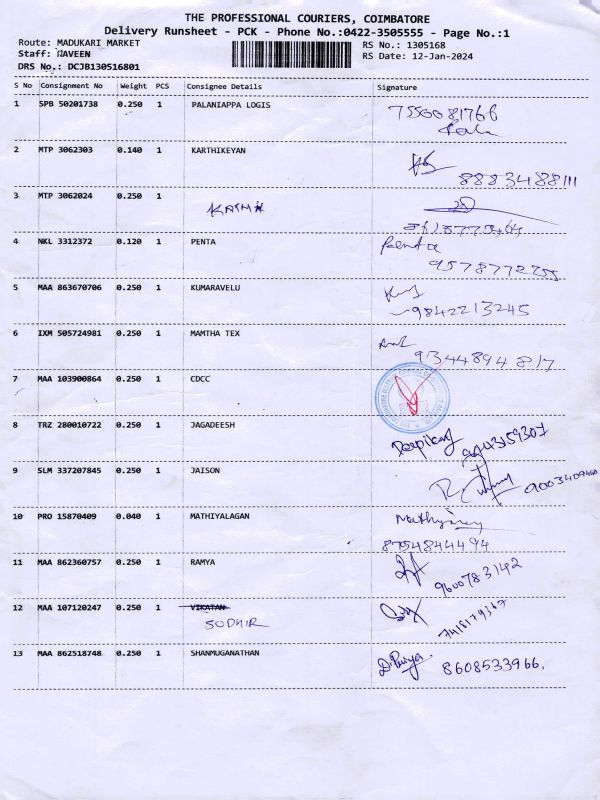 THE PROFESSIONAL COURIERS, COIMBATORE
Delivery Runsheet - PCK - Phone No.:0422-3505555 - Page No.:1
Route: MADUKARI MARKET
RS No.: 1305168
Staff: NAVEEN
RS Date: 12-Jan-2024
DRS No.: DCJB130516801
S No Consignment No Weight PCS Consignee Details Signature
1 SPB 50201738 0.250 1 PALANIAPPA LOGIS 7550081766
2 MTP 3062303 0.140 1 KARTHIKEYAN
8883488111
3 MTP 3062024 0.250 1
4 NKL 3312372 0.120 1 PENTA Penta
9578772755
5 MAA 863670706 0.250 1 KUMARAVELU
9842213245
6 IXM 505724981 0.250 1 MAMTHA TEX
9344894817
7 MAA 103900864 0.250 1 CDCC
8 TRZ 280010722 0.250 1 JAGADEESH
9 SLM 337207845 0.250 1 JAISON
10 PRO 15870409 0.040 1 MATHIYALAGAN
8754844494
11 MAA 862360757 0.250 1 RAMYA
9600783142
12 MAA 107120247 0.250 1 VIKATAN
SUDHIR
13 MAA 862518748 0.250 1 SHANMUGANATHAN
D. Priya 8608533966.